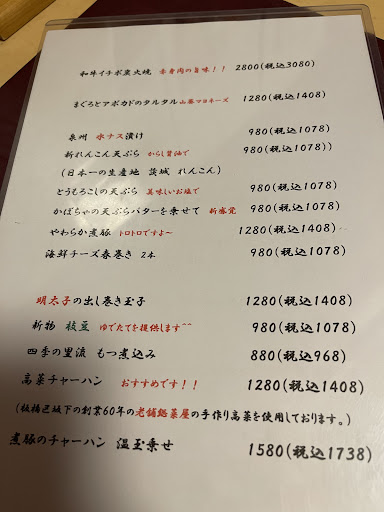 和牛イチボ炭火焼 赤身肉の旨味！！ 2800(税込3080)
まぐろとアボカドのタルタル 山葵マヨネーズ 1280(税込1408)
泉州 水ナス漬け 980(税込1078)
新れんこん天ぷら からし醤油で 980(税込1078))
(日本一の生産地 茨城 れんこん)
とうもろこしの天ぷら 美味しいお塩で 980(税込1078)
かぼちゃの天ぷらバターを乗せて 新感覚 980(税込1078)
やわらか煮豚 トロトロですよ～ 1280(税込1408)
海鮮チーズ春巻き 2本 980(税込1078)
明太子の出し巻き玉子 1280(税込1408)
新物 枝豆 ゆでたてを提供します^^ 980(税込1078)
四季の里流 もつ煮込み 880(税込968)
高菜チャーハン おすすめです！！ 1280(税込1408)
(板橋区坂下の創業60年の老舗総菜屋の手作り高菜を使用しております。)
煮豚のチャーハン 温玉乗せ 1580(税込1738)